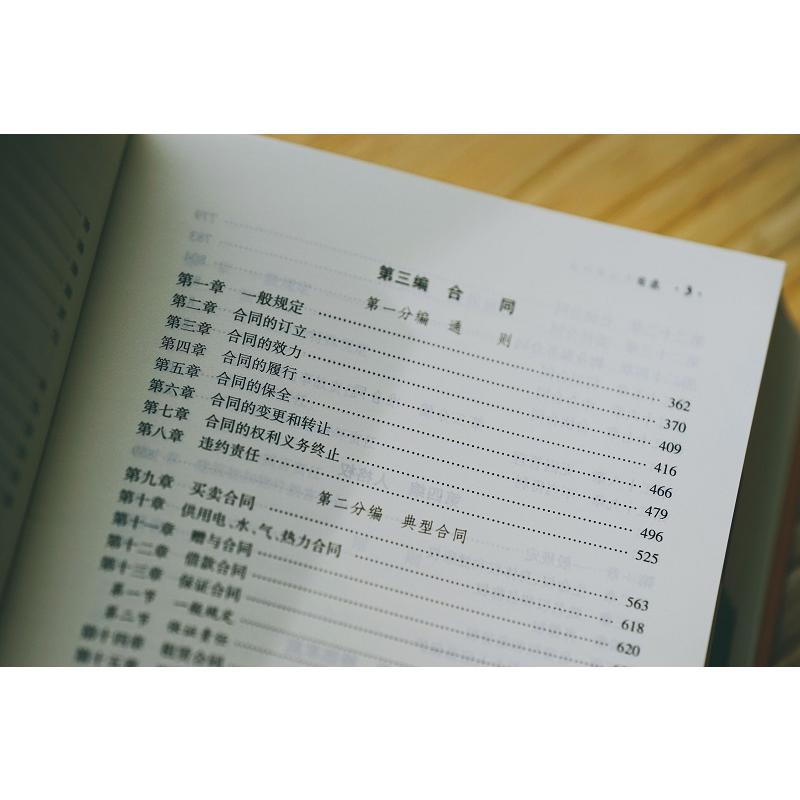 目录 · 3 ·
第三编 合 同
第一分编 通 则
第一章 一般规定 …… 362
第二章 合同的订立 …… 370
第三章 合同的效力 …… 409
第四章 合同的履行 …… 416
第五章 合同的保全 …… 466
第六章 合同的变更和转让 …… 479
第七章 合同的权利义务终止 …… 496
第八章 违约责任 …… 525
第二分编 典型合同
第九章 买卖合同 …… 563
第十章 供用电、水、气、热力合同 …… 618
第十一章 赠与合同 …… 620
第十二章 借款合同
第十三章 保证合同
第一节 一般规定
第二节 保证责任
第十四章 租赁合同
第十五章